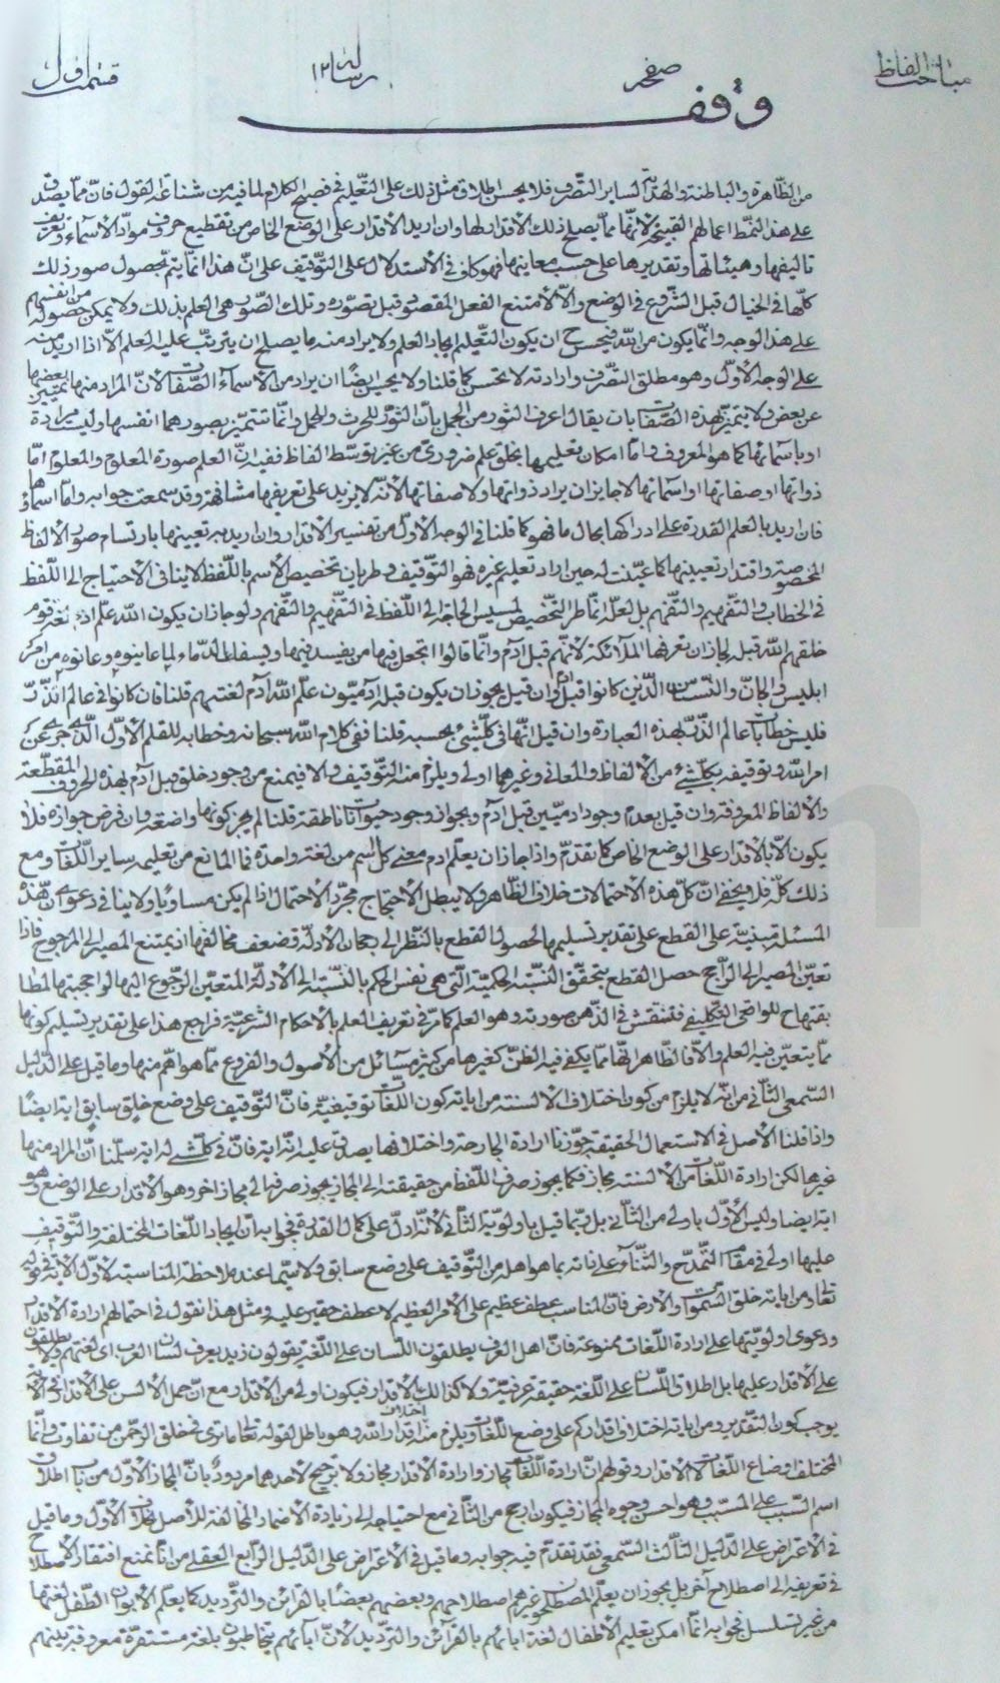 مباحث الفاظ صفحه رساله ١٢ قسمت اول
وقف
من الظاهرة والباطنة والهداية لسائر التصرف فلا يحسن اطلاق مثل ذلك على التعليم في فصيح الكلام لما فيه من شناعة القول فان مما يصدق
على هذا النمط اعمالهم القبيحة لانها مما يصلح ذلك الاقدار لها وان اريد الاقدار على الوضع الخاص من تقطيع حروف مواد الاسماء وتعريف
تاليفها وهيئاتها وتقديرها على حسب معانيها فهو كاف في الاستدلال على التوقيف على ان هذا انما يتم بحصول صور ذلك
كلها في الخيال قبل الشروع في الوضع والا لامتنع الفعل المقصود قبل تصوره وتلك الصور هي العلم بذلك ولا يمكن حصوله من انفسهم
على هذا الوجه وانما يكون من الله فيحسن ان يكون التعليم ايجاد العلم ولا يراد منه ما يصلح ان يترتب عليه العلم الا اذا اريد منه
على الوجه الاول وهو مطلق التصرف وارادته لا تحسن كما قلنا ولا يحسن ايضا ان يراد من الاسماء الصفات لان المراد منها تمييز بعضها
عن بعض ولا يتميز بهذه الصفات بان يقال اعرف الثور من الجمل بان الثور للحرث والجمل وانما تتميز بصورهما انفسها وليست مرادة
او باسمائها كما هو المعروف واما امكان تعليمها بخلق علم ضروري من غير توسط الفاظ ففيه ان العلم صورة المعلوم والمعلوم اما
ذواتها او صفاتها او اسمائها لا جايز ان يراد ذواتها ولا صفاتها لانه لا يزيد على تعريفها مشافهة وقد سمعت جوابه واما اسماؤها
فان اريد بالعلم القدرة على ادراكها بحال ما فهو كما قلنا في الوجه الاول من تفسير الاقدار وان اريد به تعيينها بارتسام صور الالفاظ
المخصوصة واقتدار تعيينها كما عينت له حين اراد تعليم غيره فهو التوقيف وطريان تخصيص الاسم باللفظ لا ينافى الاحتياج الى اللفظ
في الخطاب والتفهيم والتفهم بل لعله انما طرء التخصيص لمسيس الحاجة الى اللفظ في التفهيم والتفهم ولو جاز ان يكون الله علم ادم لغة قوم
خلقهم الله قبله لجاز ان تعرفها الملائكة لانهم قبل آدم وانما قالوا اتجعل فيها من يفسد فيها ويسفك الدماء لما عاينوه وعانوه من امر
ابليس والجان والنسناس الذين كانوا قبل وان قيل يجوز ان يكون قبله آدميون علم الله آدم لغتهم قلنا فان كانوا في عالم الذر
فليس خطابات عالم الذر بهذه العبارة وان قيل انها في كل شيئ بحسبه قلنا ففى كلام الله سبحانه وخطابه للقلم الاول الذى جرى عن
امر الله وتوقيفه بكل شيء من الالفاظ والمعاني وغيرهما اولى ويلزم منه التوقيف والا فيمنع من وجود خلق قبل آدم بهذه الحروف المقطعة
والالفاظ المعروفة وان قيل بعدم وجود ادميين قبل آدم وبجواز وجود حيوانات ناطقة قلنا لم يجز كونها واضعة وان فرض جوازه فلا
يكون الا بالاقدار على الوضع الخاص كما تقدم واذا جاز ان يعلم ادم معنى كل اسم من لغة واحدة فما المانع من تعليمه سائر اللغات ومع
ذلك كله فلا يخفى ان كل هذه الاحتمالات خلاف الظاهر ولا يبطل الاحتجاج مجرد الاحتمال اذا لم يكن مساويا ولا ينافى دعوى ان هذه
المسئلة مبنية على القطع على تقدير تسليمها لحصول القطع بالنظر الى رجحان الادلة وضعف مخالفها اذ يمتنع المصير الى المرجوح فاذا
تعين المصير الى الراجح حصل القطع بتحقق النسبة الحكمية التى هي نفس الحكم بالنسبة الى الادلة المتعين الرجوع اليها لواجحيتها المطا
بقتها ح للواقعى التكليفى فتنتقش في الذهن صورته وهو العلم كما مر في تعريف العلم بالاحكام الشرعية فراجع هذا على تقدير تسليم كونها
مما يتعين فيه العلم والا فالظاهر انها مما يكفى فيه الظن كغيرها من كثير مسائل من الاصول والفروع مما هو اهم منها وما قيل على الدليل
السمعى الثاني من انه لا يلزم من كون اختلاف الالسنة من اياته كون اللغات توقيفية فان التوقيف على وضع خلق سابق اية ايضا
واذا قلنا الاصل في الاستعمال الحقيقة جوزنا ارادة الجارحة واختلافها يصدق عليه انه اية فان في كل شيء له اية سلمنا ان المراد منها
غيرها لكن ارادة اللغات من الالسنة مجاز فكما يجوز صرف اللفظ من حقيقته الى المجاز يجوز صرفه الى مجاز اخر وهو الاقدار على الوضع وهو
اية ايضا وليس الاول باولى من الثاني بل ربما قيل باولوية الثاني لانه ادل على كمال القدرة فجوابه ان ايجاد اللغات المختلفة والتوقيف
عليها اولى في مقام التمدح والثناء على ذاته بما هو اهله من التوقيف على وضع سابق ولا سيما عند ملاحظة المناسبة لاول الاية في قوله
تعالى ومن اياته خلق السموات والارض فان المناسب عطف عظيم على الامر العظيم لا عطف حقير عليه ومثل هذا نقول في احتمالهم ارادة الاقدار
ودعوى اولويتها على ارادة اللغات ممنوعة فان اهل العرف يطلقون اللسان على اللغة يقولون زيد يعرف لسان العرب اى لغتهم ولا يطلقون
على الاقدار عليها بل اطلاق اللسان على اللغة حقيقة عرفية ولا كذلك الاقدار فيكون اولى من الاقدار مع ان حمل الالسن على الاقدار
يوجب كون التقدير ومن اياته اختلاف اقداركم على وضع اللغات ويلزم منه اختلاف اقدار الله وهو باطل لقوله تعالى ما ترى في خلق الرحمن من تفاوت وانما
المختلف اوضاع اللغات لا الاقدار وقولهم ان ارادة اللغات مجاز وارادة الاقدار مجاز ولا ترجيح لاحدهما مردود بان المجاز الاول من باب اطلاق
اسم السبب على المسبب وهو احسن وجوه المجاز فيكون ارجح من الثاني مع احتياجه الى زيادة الاضمار المخالفة للاصل بخلاف الاول وما قيل
في الاعتراض على الدليل الثالث السمعى فقد تقدم فيه جوابه وما قيل في الاعتراض على الدليل الرابع العقلى من انا نمنع افتقار الاصطلاح
في تعريفه الى اصطلاح آخر بل يجوز ان يعلم المصطلحون غيرهم اصطلاحهم وبعضهم بعضا بالقرائن والترديد كما يعلم الابوان الطفل لغتها
من غير تسلسل فجوابه انما امكن تعليم الاطفال لغة ابائهم بالقرائن والترديد لان آبائهم يتخاطبون بلغة مستقرة معروفة بينهم